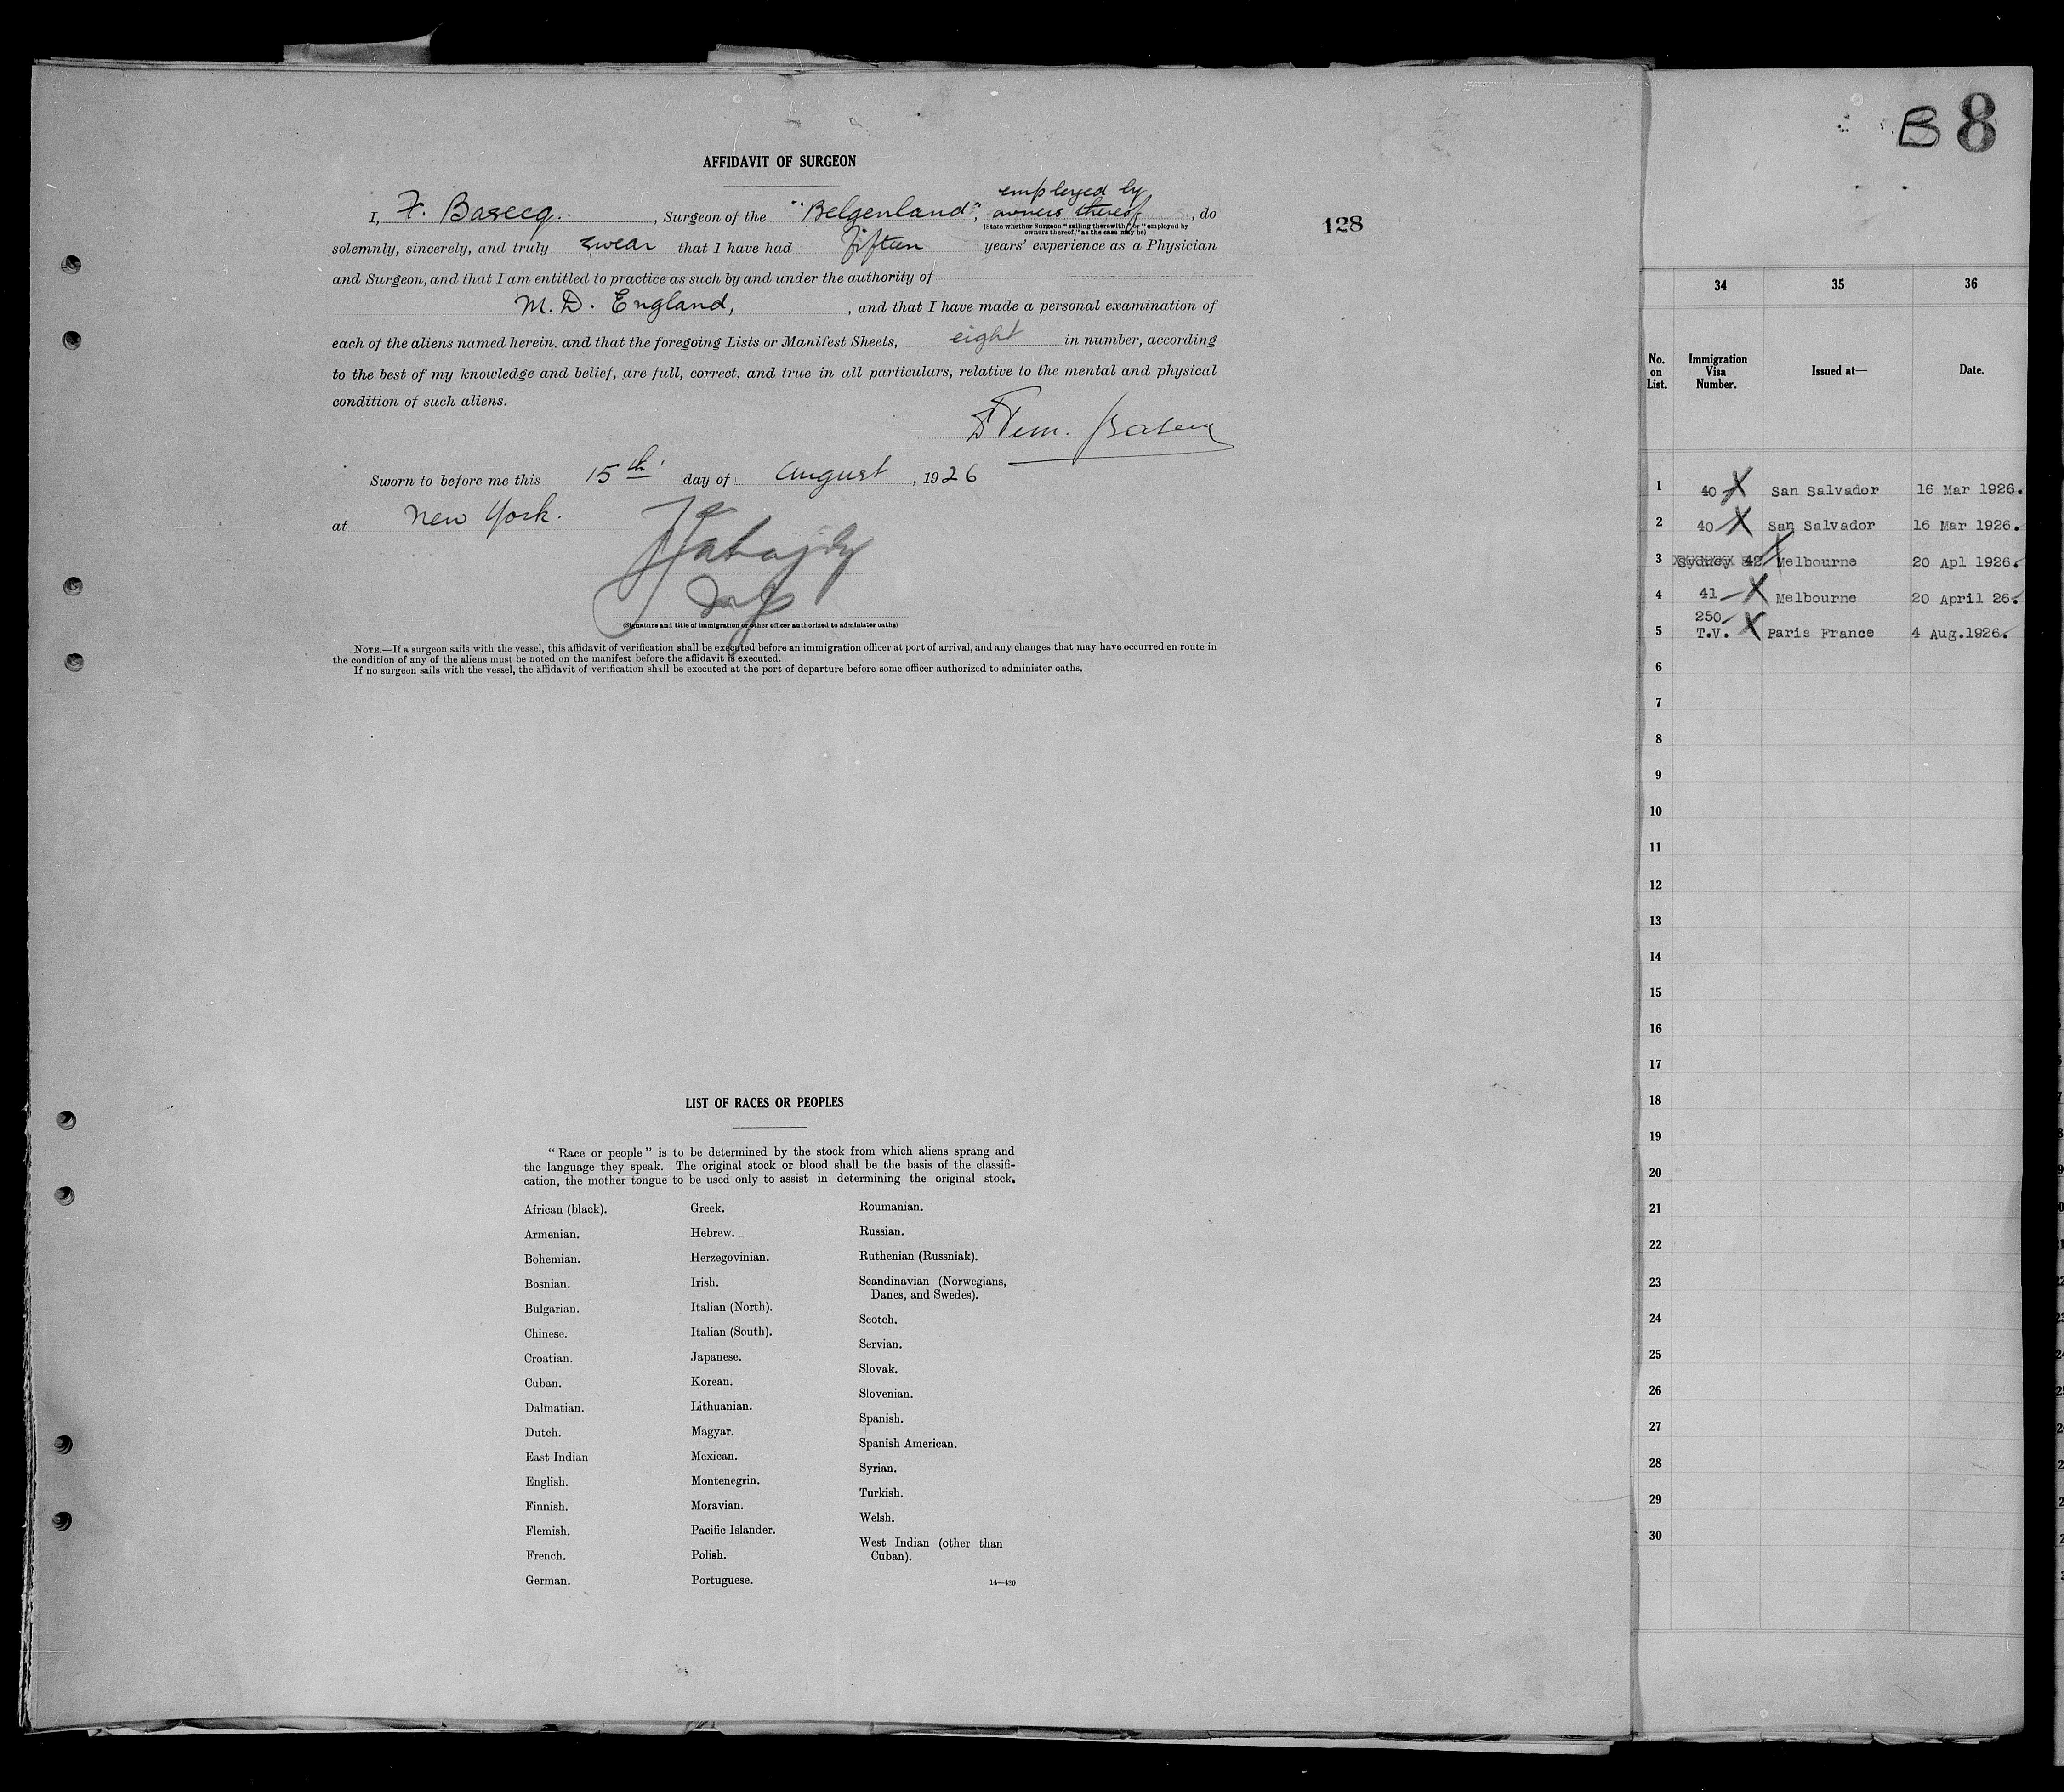 B 8
AFFIDAVIT OF SURGEON
employed by
I, F. Basecq. , Surgeon of the "Belgenland", owners thereof , do
(State whether Surgeon "sailing therewith," or "employed by
owners thereof," as the case may be)
128
solemnly, sincerely, and truly swear that I have had fifteen years' experience as a Physician
and Surgeon, and that I am entitled to practice as such by and under the authority of
M.D. England, , and that I have made a personal examination of
each of the aliens named herein, and that the foregoing Lists or Manifest Sheets, eight in number, according
to the best of my knowledge and belief, are full, correct, and true in all particulars, relative to the mental and physical
condition of such aliens.
Sworn to before me this 15th day of August , 1926
at New York.
(Signature and title of immigration or other officer authorized to administer oaths)
NOTE.—If a surgeon sails with the vessel, this affidavit of verification shall be executed before an immigration officer at port of arrival, and any changes that may have occurred en route in
the condition of any of the aliens must be noted on the manifest before the affidavit is executed.
If no surgeon sails with the vessel, the affidavit of verification shall be executed at the port of departure before some officer authorized to administer oaths.
LIST OF RACES OR PEOPLES
"Race or people" is to be determined by the stock from which aliens sprang and
the language they speak. The original stock or blood shall be the basis of the classifi-
cation, the mother tongue to be used only to assist in determining the original stock.
African (black).
Armenian.
Bohemian.
Bosnian.
Bulgarian.
Chinese.
Croatian.
Cuban.
Dalmatian.
Dutch.
East Indian
English.
Finnish.
Flemish.
French.
German.
Greek.
Hebrew.
Herzegovinian.
Irish.
Italian (North).
Italian (South).
Japanese.
Korean.
Lithuanian.
Magyar.
Mexican.
Montenegrin.
Moravian.
Pacific Islander.
Polish.
Portuguese.
Roumanian.
Russian.
Ruthenian (Russniak).
Scandinavian (Norwegians,
Danes, and Swedes).
Scotch.
Servian.
Slovak.
Slovenian.
Spanish.
Spanish American.
Syrian.
Turkish.
Welsh.
West Indian (other than
Cuban).
14—430
34 35 36
No. on List. Immigration Visa Number. Issued at— Date.
1 40 X San Salvador 16 Mar 1926.
2 40 X San Salvador 16 Mar 1926.
3 Sydney 42 Melbourne 20 Apl 1926.
4 41 X Melbourne 20 April 26.
250
5 T.V. X Paris France 4 Aug.1926.
6
7
8
9
10
11
12
13
14
15
16
17
18
19
20
21
22
23
24
25
26
27
28
29
30